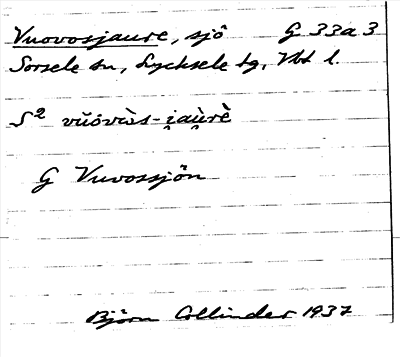 Vuovosjaure, sjö G 33a 3
Sorsele sn, Lycksele tg, Vbt l.
S² vŭóvùs-i̯aù̯rè
G Vuvossjön
Björn Collinder 1937